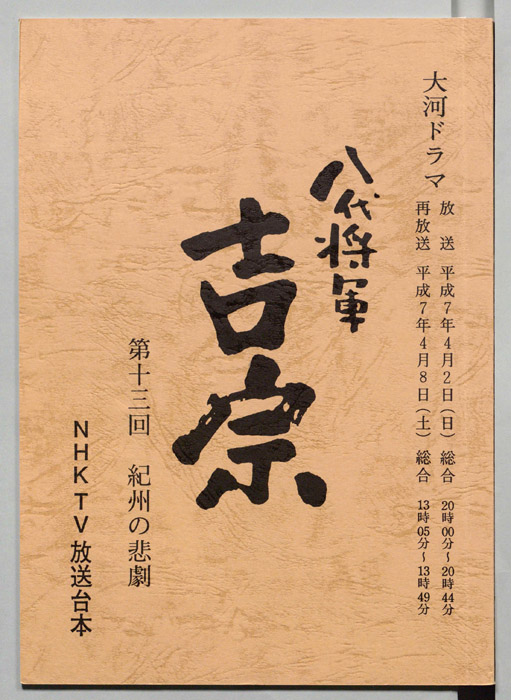 大河ドラマ
放送 平成7年4月2日(日) 総合 20時00分~20時44分
再放送 平成7年4月8日(土) 総合 13時05分~13時49分
八代将軍
吉宗
第十三回 紀州の悲劇
NHK TV 放送台本